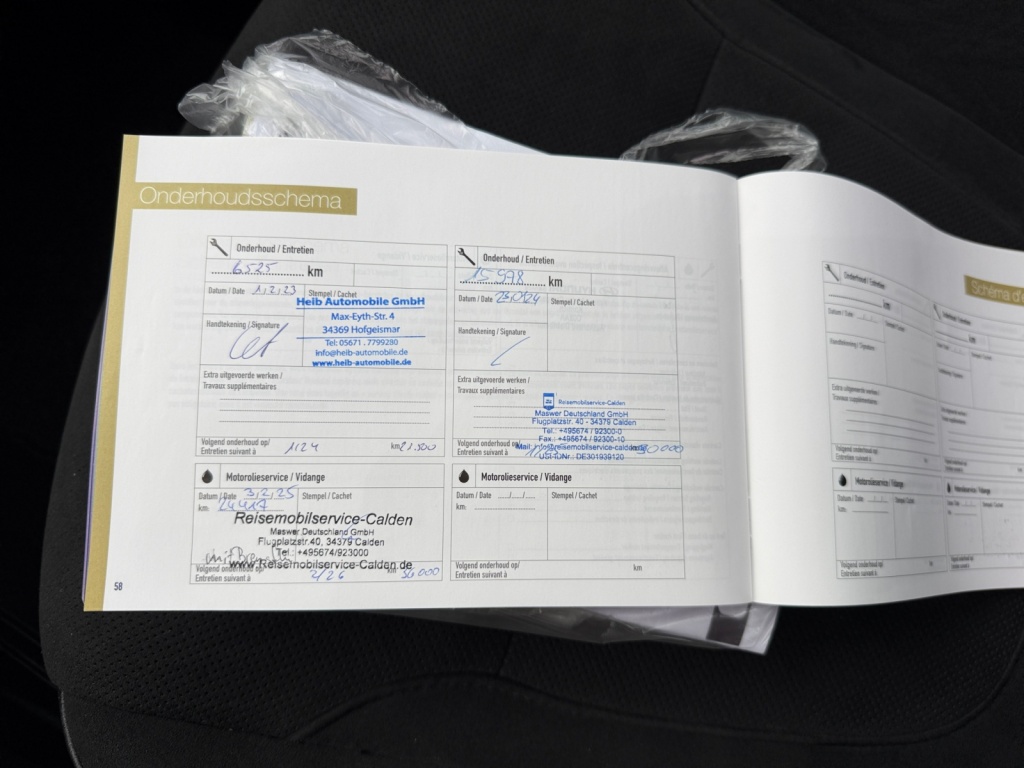 Onderhoudsschema
Onderhoud / Entretien
6525 km
Datum / Date 1,2,23 Stempel / Cachet
Heib Automobile GmbH
Max-Eyth-Str. 4
34369 Hofgeismar
Tel: 05671 . 7799280
info@heib-automobile.de
www.heib-automobile.de
Handtekening / Signature
Extra uitgevoerde werken /
Travaux supplémentaires
Volgend onderhoud op/
Entretien suivant à 1/24 km 21.500
Onderhoud / Entretien
15 978 km
Datum / Date Stempel / Cachet
Handtekening / Signature
Extra uitgevoerde werken /
Travaux supplémentaires
Reisemobilservice-Calden
Maswer Deutschland GmbH
Flugplatzstr. 40 - 34379 Calden
Tel.: +495674 / 92300-0
Fax.: +495674 / 92300-10
Mail: info@reisemobilservice-calden
USt-IDNr.: DE301939120
Volgend onderhoud op/
Entretien suivant à
Motorolieservice / Vidange
Datum / Date 3,2,25 Stempel / Cachet
km:
Reisemobilservice-Calden
Maswer Deutschland GmbH
Flugplatzstr.40, 34379 Calden
Tel.: +495674/923000
www.Reisemobilservice-Calden.de
Volgend onderhoud op/
Entretien suivant à 2/26 km
Motorolieservice / Vidange
Datum / Date ..../..../.... Stempel / Cachet
km:
Volgend onderhoud op/
Entretien suivant à km
58
Schéma d'
Onderhoud / Entretien
km
Datum / Date Stempel / Cachet
Handtekening / Signature
Extra uitgevoerde werken /
Travaux supplémentaires
Volgend onderhoud op/
Entretien suivant à
Motorolieservice / Vidange
Datum / Date Stempel / Cachet
km:
Volgend onderhoud op/
Entretien suivant à